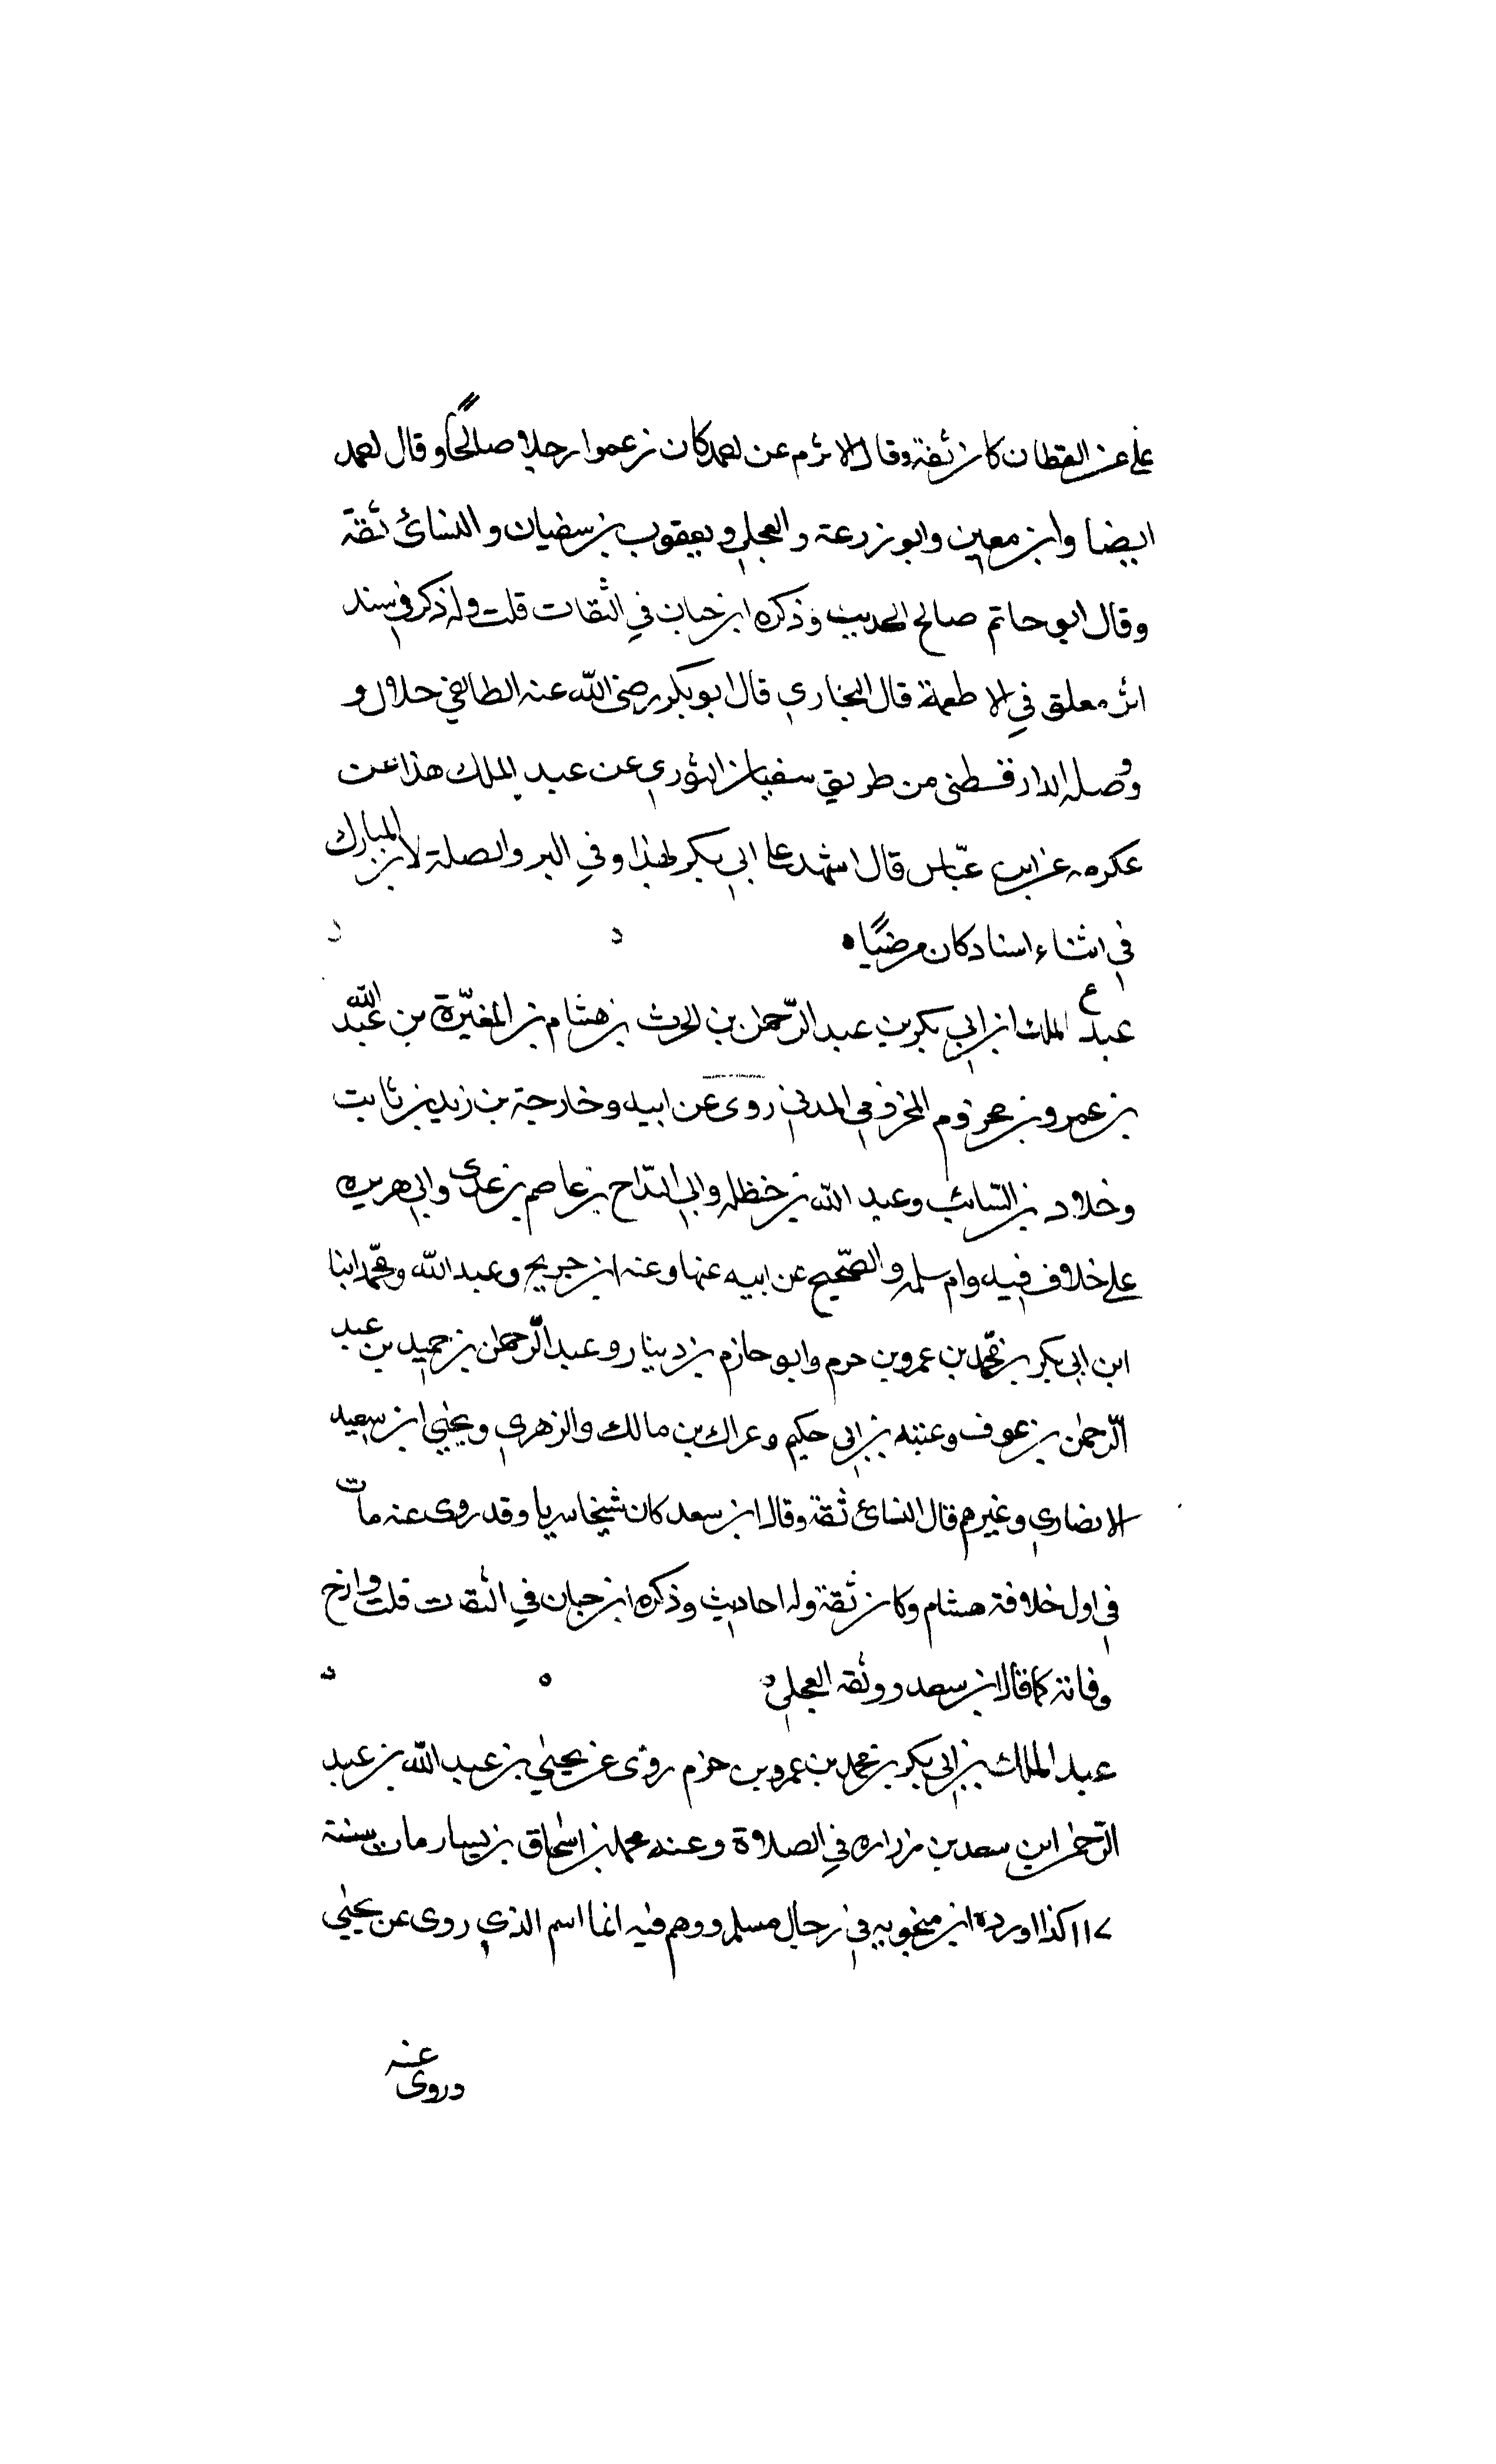 علي عن القطان كان ثقة وقال الاثرم عن احمد كان زعموا رجلا صالحًا وقال احمد
ايضا وابن معين وابو زرعة والعجلي ويعقوب بن سفيان والنسائ ثقة
وقال ابو حاتم صالح الحديث وذكره ابن حبان في الثقات قلت وله ذكر في سند
اثر معلق في الاطعمة قال البخاري قال ابو بكر رضى الله عنه الطافي حلال و
وصله الدارقطنى من طريق سفيان الثوري عن عبد الملك هذا عن
عكرمه عن ابن عبّاس قال اشهد علي ابي بكر بهذا وفي البر والصلة لابن المبارك
في اثناء اسناد كان مرضيًا
ع
عبد الملك ابن ابي بكر بن عبد الرّحمن بن الحرث بن هشام بن المغيّرة بن عبد الله
بن عمرو بن مخزوم المخزومي المدني روى عن ابيه وخارجة بن زيد بن ثابت
وخلاد بن السّائب وعبد الله بن حنظله وابي البدّاح بن عاصم بن عدى وابي هريره
علي خلاف فيه وام سلمه والصّحيح عن ابيه عنها وعنه ابن جريج وعبد الله ومحمّد ابنا
ابن ابي بكر بن محمّد بن عمرو بن حزم وابو حازم بن دينار وعبد الّرحمن بن حميد بن عبد
الّرحمن بن عوف وعتبه بن ابي حكيم وعراك بن مالك والزهري ويحيي ابن سعيد
الانصاري وغيرهم قال النسائ ثقة وقال ابن سعد كان شيخا سريا وقد روى عنه مات
في اول خلافة هشام وكان ثقة وله احاديث وذكره ابن حبان في الثقات قلت وارخ
وفاته كما قال ابن سعد ووثقه العجلي
عبد الملك بن ابي بكر بن محمد بن عمرو بن حزم روى عن يحيي بن عبد الله بن عبد
الرّحمن ابن سعد بن زراره في الصلاة وعنه محمد بن اسحاق بن يسار مات سنة
١١٧ كذا اورده ابن منجويه في رجال مسلم ووهم فيه انما اسم الذي روى عن يحيي
وروى عنه